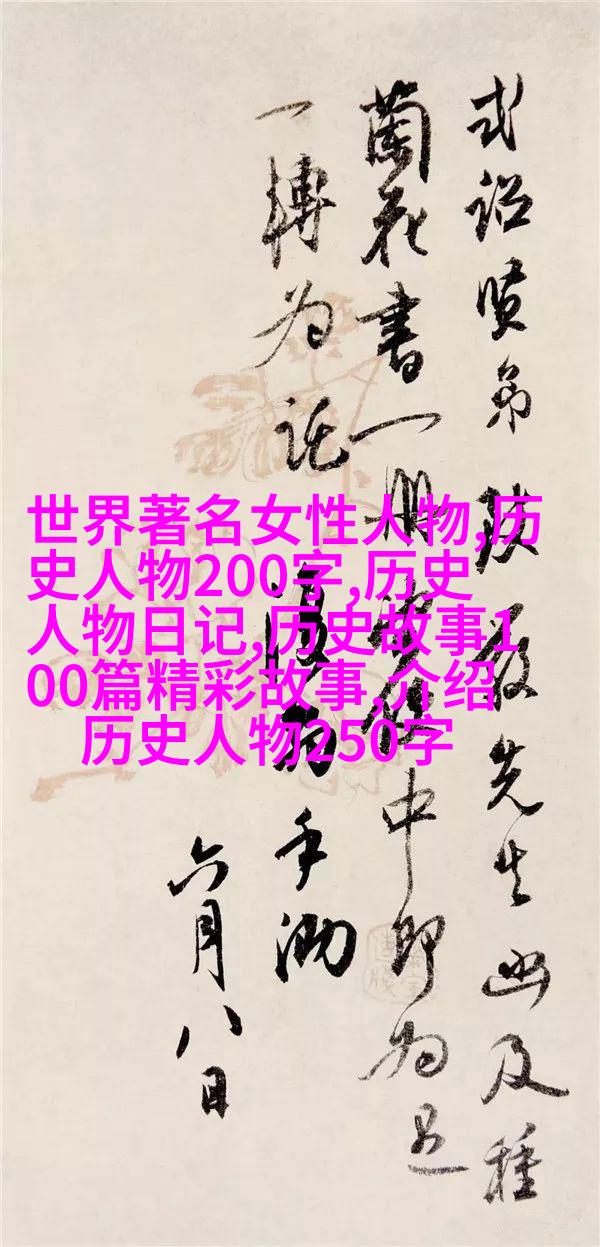 贤弟 先生函及種
蘭花書一册 中即为
一轉为託 手泐
六月八日
世界著名女性人物,历
史人物200字,历史
人物日记,历史故事1
00篇精彩故事,介绍
历史人物250字